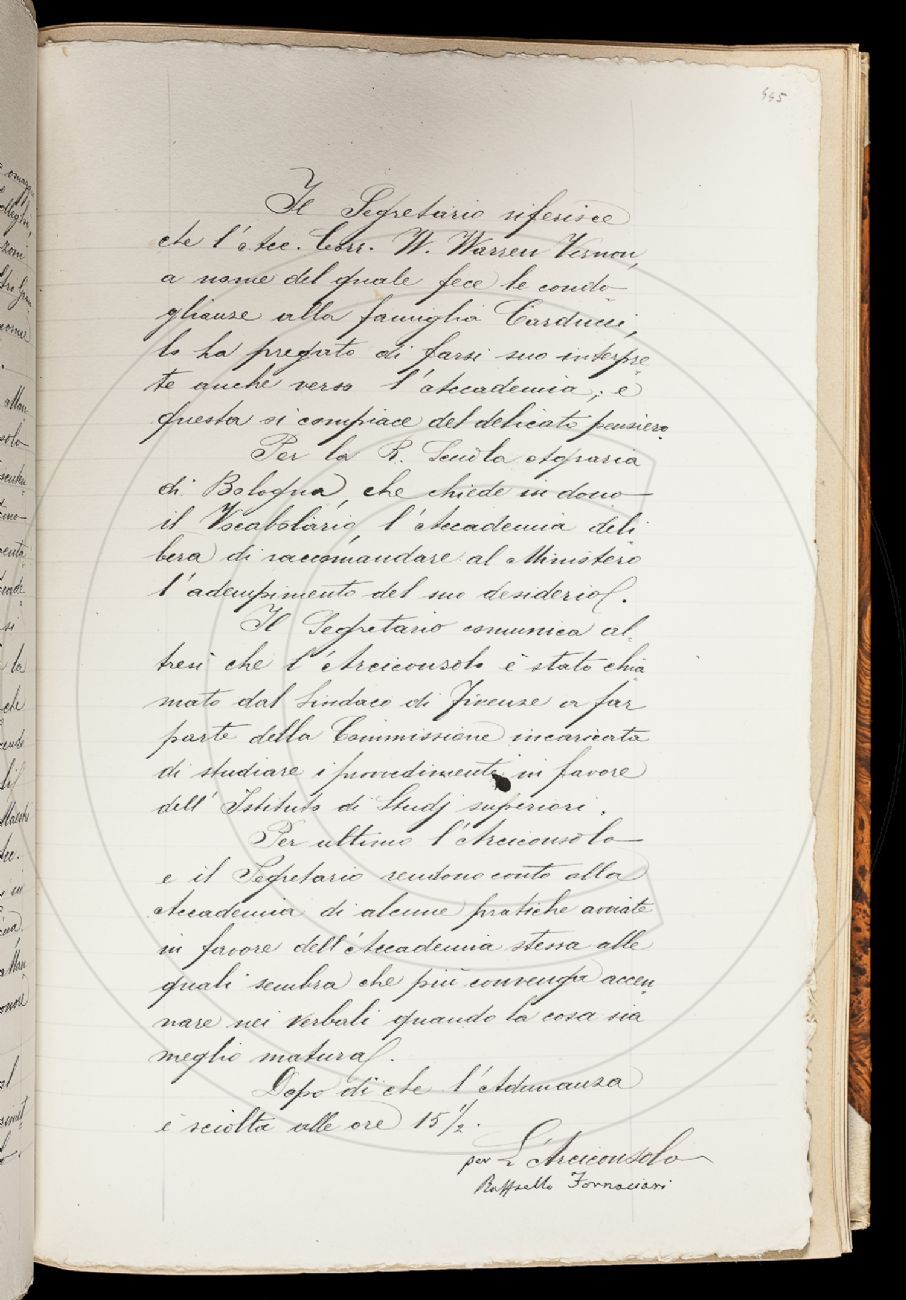 445
Il Segretario riferisce
che l'Acc. Corr. W. Warren Vernon,
a nome del quale fece le condo-
glianze alla famiglia Carducci,
lo ha pregato di farsi suo interpre-
te anche verso l'Accademia; e
questa si compiace del delicato pensiero.
Per la R. Scuola Agraria
di Bologna, che chiede in dono
il Vocabolario, l'Accademia deli-
bera di raccomandare al Ministero
l'adempimento del suo desiderio.
Il Segretario comunica al-
tresì che l'Arciconsolo è stato chia-
mato dal Sindaco di Firenze a far
parte della Commissione incaricata
di studiare i provvedimenti in favore
dell'Istituto di Studj superiori.
Per ultimo l'Arciconsolo
e il Segretario rendono conto alla
Accademia di alcune pratiche avviate
in favore dell'Accademia stessa alle
quali sembra che più convenga accen-
nare nei verbali quando la cosa sia
meglio matura.
Dopo di che l'Adunanza
è sciolta alle ore 15 1/2.
per L'Arciconsolo
Raffaello Fornaciari